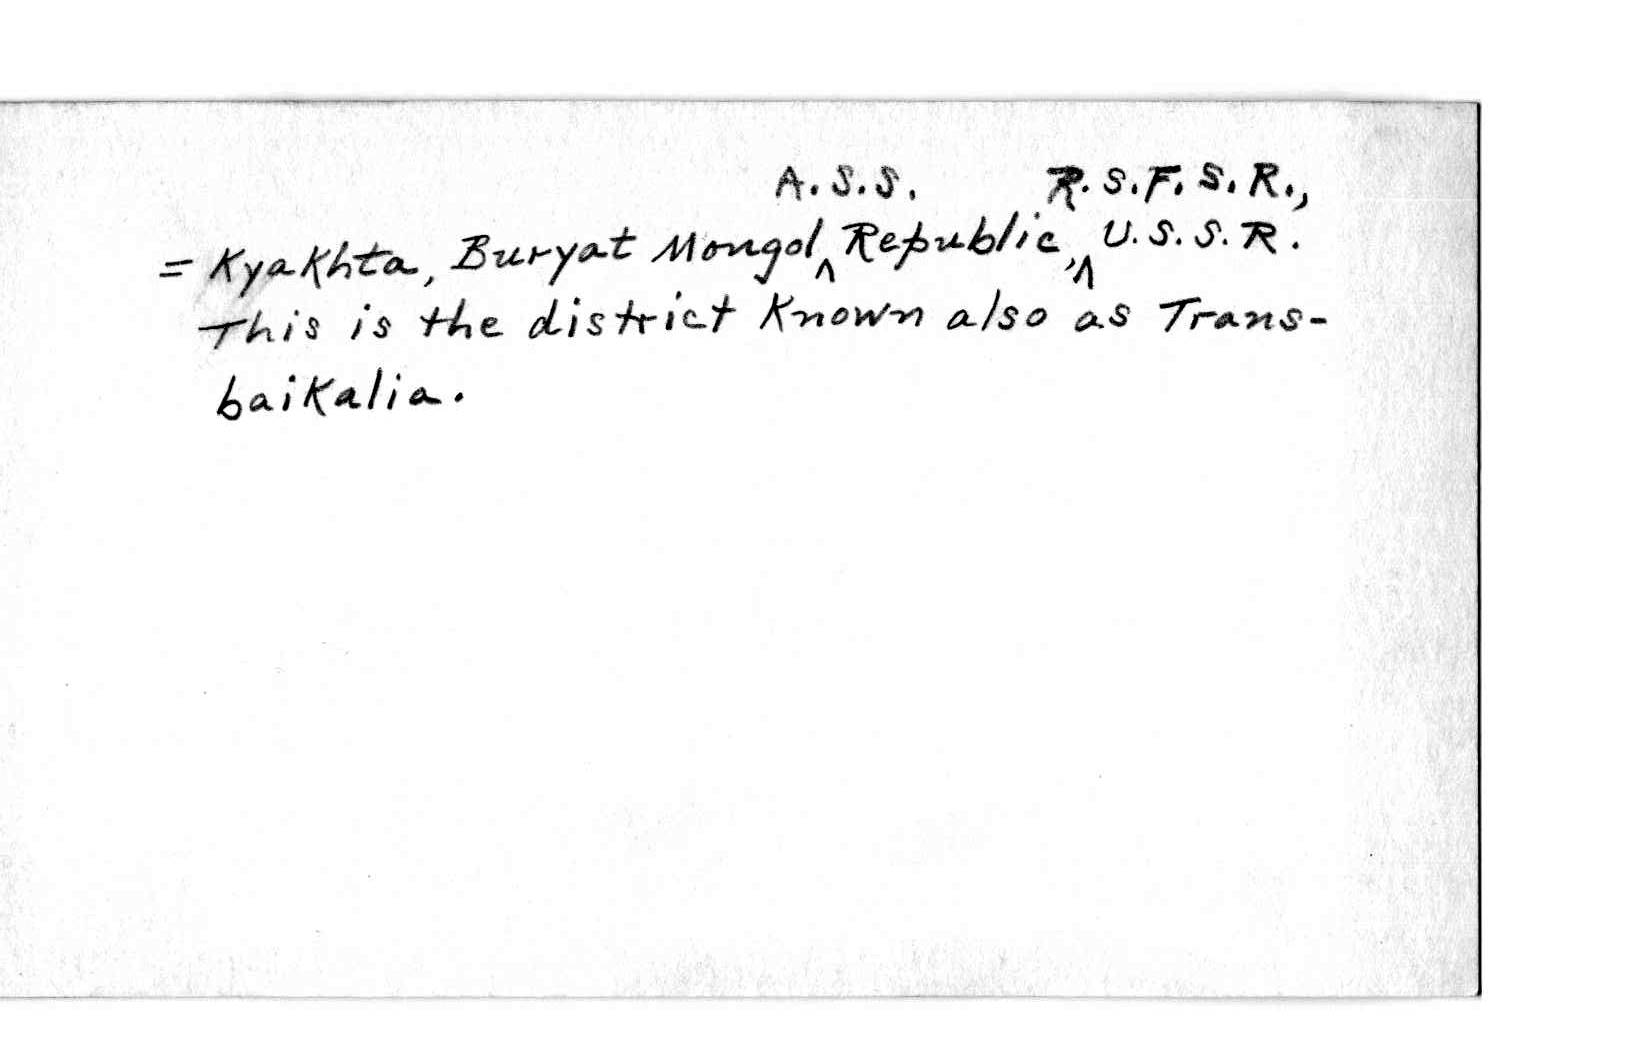 A.S.S. R.S.F.S.R.,
= Kyakhta, Buryat Mongol ^ Republic, ^ U.S.S.R.
This is the district Known also as Trans-
baikalia.